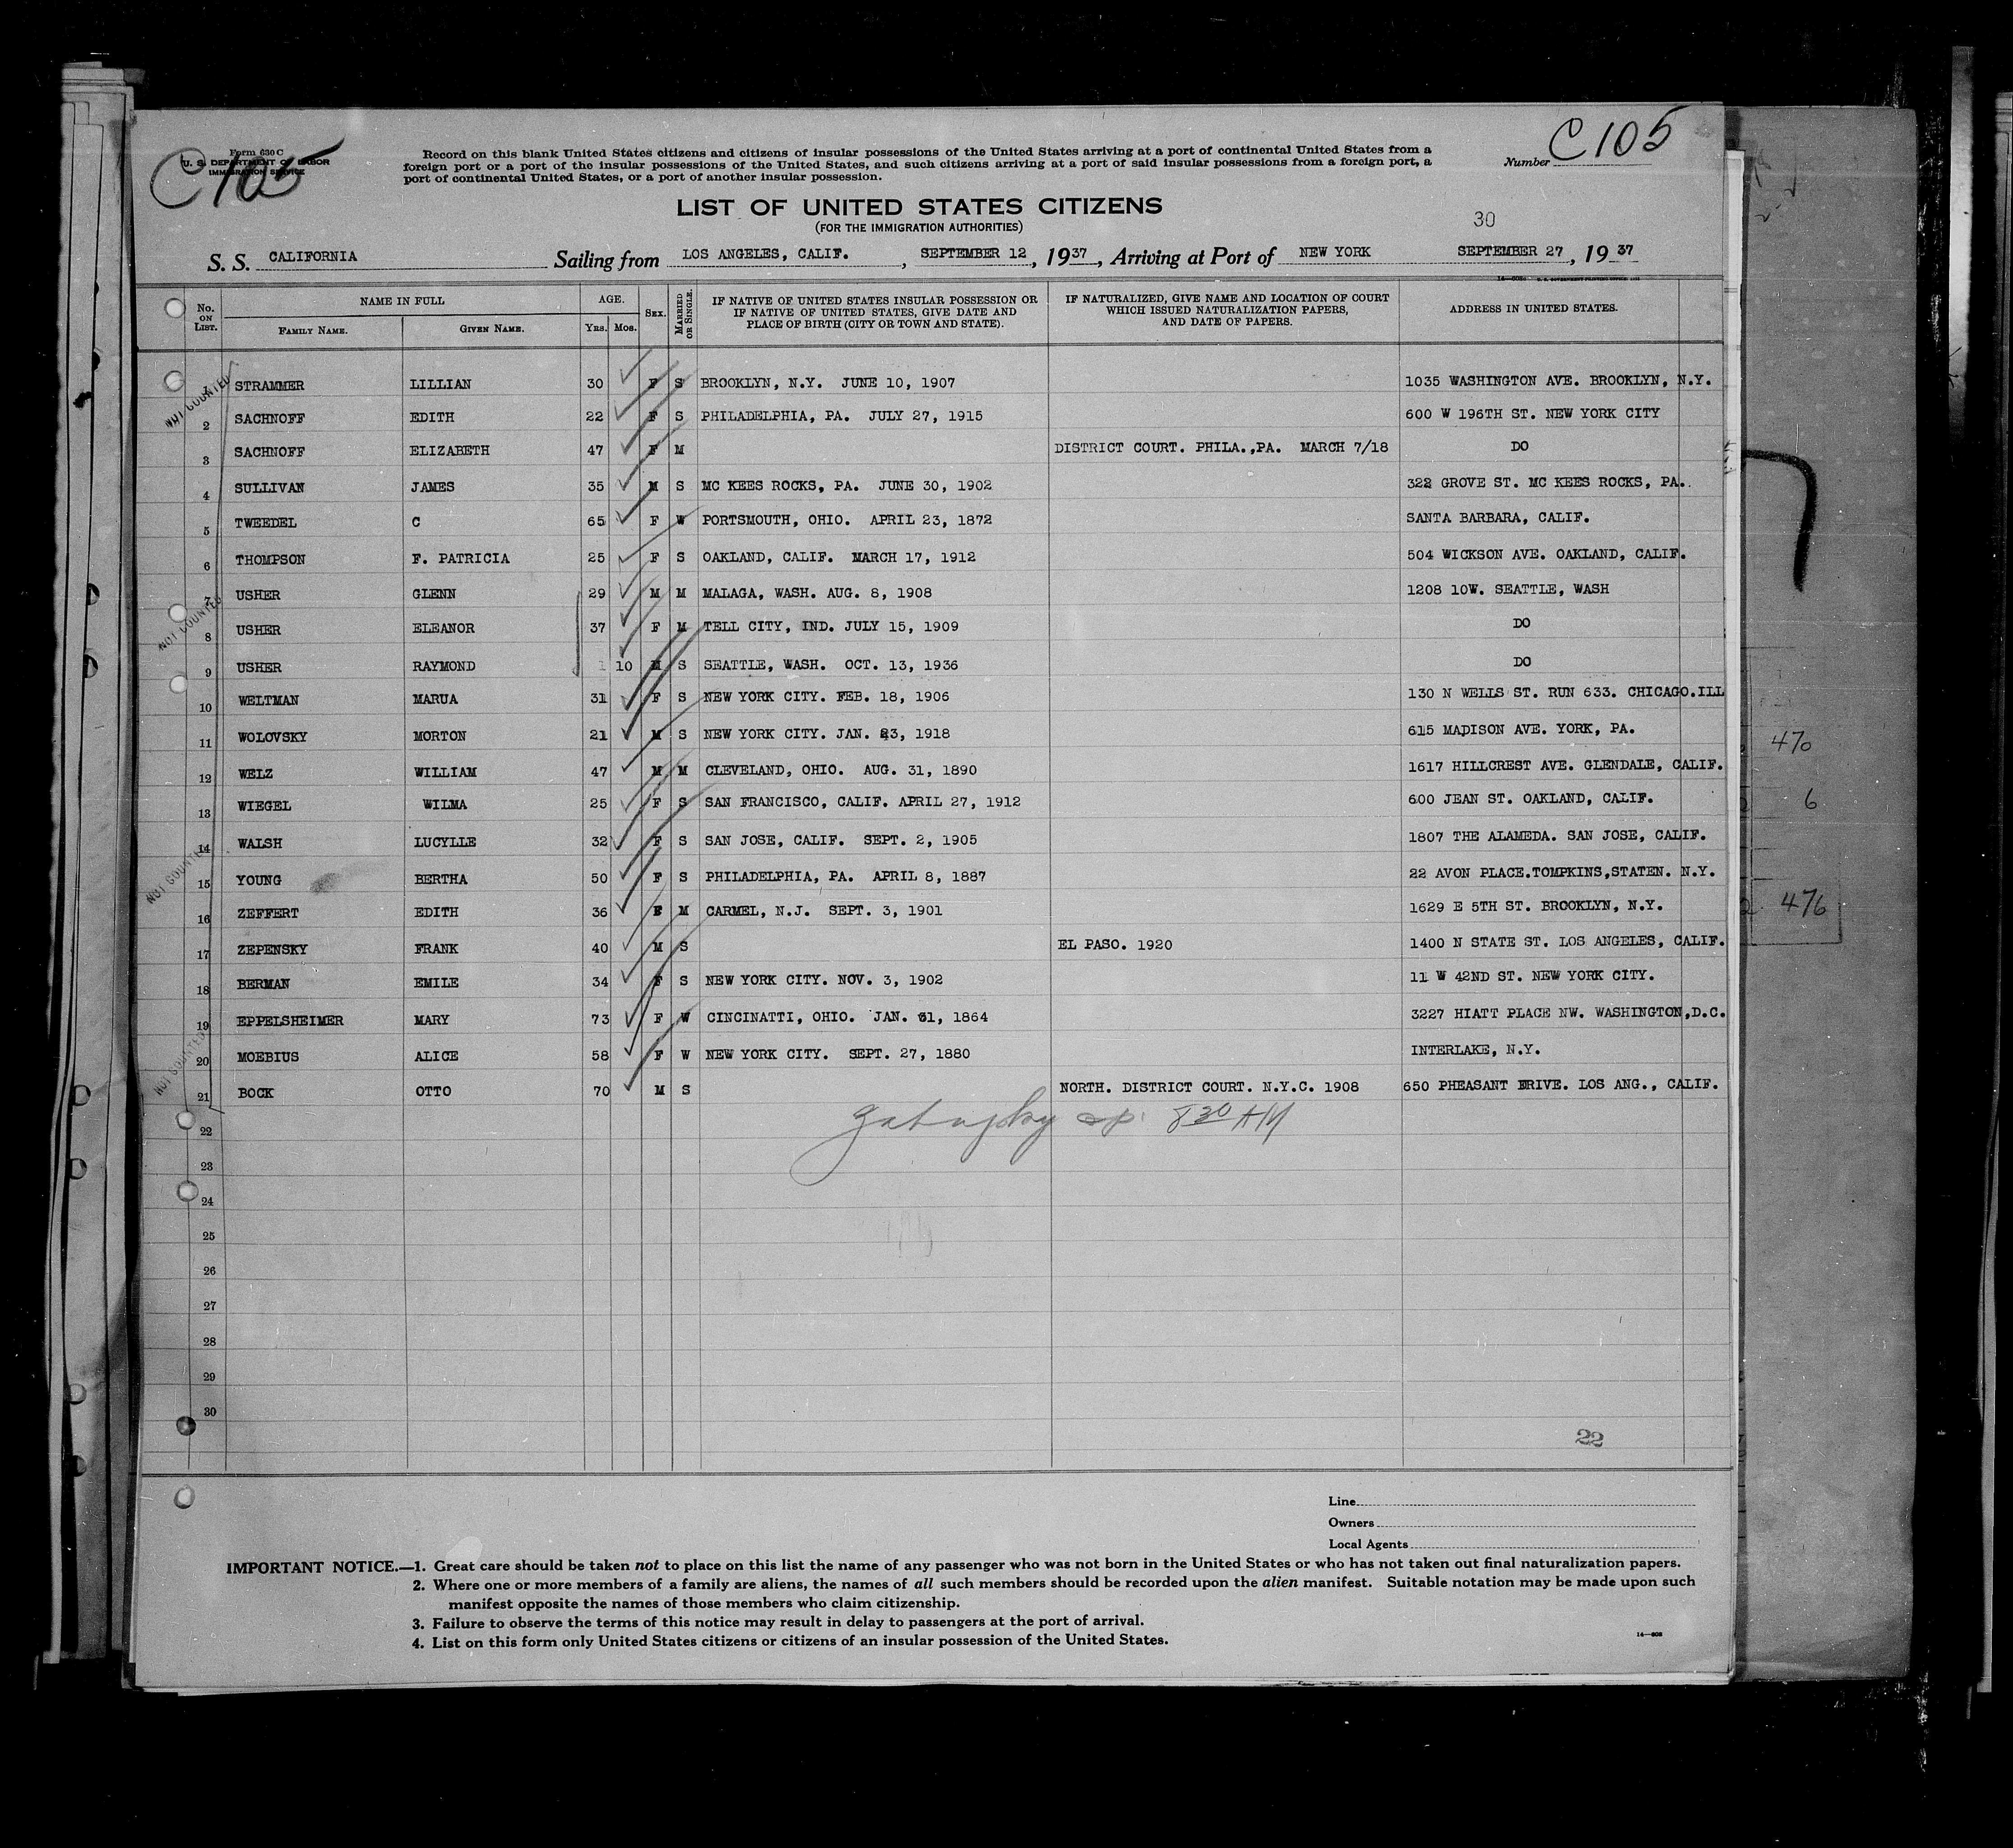 C 105
Form 630 C
U. S. DEPARTMENT OF LABOR
IMMIGRATION SERVICE
Record on this blank United States citizens and citizens of insular possessions of the United States arriving at a port of continental United States from a
foreign port or a port of the insular possessions of the United States, and such citizens arriving at a port of said insular possessions from a foreign port, a
port of continental United States, or a port of another insular possession.
Number C 105
LIST OF UNITED STATES CITIZENS
(FOR THE IMMIGRATION AUTHORITIES)
30
S. S. CALIFORNIA Sailing from LOS ANGELES, CALIF. , SEPTEMBER 12 , 1937 , Arriving at Port of NEW YORK SEPTEMBER 27 , 1937
No. ON LIST. NAME IN FULL FAMILY NAME. GIVEN NAME. AGE. YRS. MOS. SEX. MARRIED OR SINGLE. IF NATIVE OF UNITED STATES INSULAR POSSESSION OR IF NATIVE OF UNITED STATES, GIVE DATE AND PLACE OF BIRTH (CITY OR TOWN AND STATE). IF NATURALIZED, GIVE NAME AND LOCATION OF COURT WHICH ISSUED NATURALIZATION PAPERS, AND DATE OF PAPERS. ADDRESS IN UNITED STATES.
NOT COUNTED
1 STRAMMER LILLIAN 30 F S BROOKLYN, N.Y. JUNE 10, 1907 1035 WASHINGTON AVE. BROOKLYN, N.Y.
2 SACHNOFF EDITH 22 F S PHILADELPHIA, PA. JULY 27, 1915 600 W 196TH ST. NEW YORK CITY
3 SACHNOFF ELIZABETH 47 F M DISTRICT COURT. PHILA.,PA. MARCH 7/18 DO
4 SULLIVAN JAMES 35 M S MC KEES ROCKS, PA. JUNE 30, 1902 322 GROVE ST. MC KEES ROCKS, PA.
5 TWEEDEL C 65 F W PORTSMOUTH, OHIO. APRIL 23, 1872 SANTA BARBARA, CALIF.
6 THOMPSON F. PATRICIA 25 F S OAKLAND, CALIF. MARCH 17, 1912 504 WICKSON AVE. OAKLAND, CALIF.
NOT COUNTED
7 USHER GLENN 29 M M MALAGA, WASH. AUG. 8, 1908 1208 10W. SEATTLE, WASH
8 USHER ELEANOR 37 F M TELL CITY, IND. JULY 15, 1909 DO
9 USHER RAYMOND 10 M S SEATTLE, WASH. OCT. 13, 1936 DO
10 WELTMAN MARUA 31 F S NEW YORK CITY. FEB. 18, 1906 130 N WELLS ST. RUN 633. CHICAGO.ILL
11 WOLOVSKY MORTON 21 M S NEW YORK CITY. JAN. 23, 1918 615 MADISON AVE. YORK, PA.
12 WELZ WILLIAM 47 M M CLEVELAND, OHIO. AUG. 31, 1890 1617 HILLCREST AVE. GLENDALE, CALIF.
13 WIEGEL WILMA 25 F S SAN FRANCISCO, CALIF. APRIL 27, 1912 600 JEAN ST. OAKLAND, CALIF.
14 WALSH LUCYLLE 32 F S SAN JOSE, CALIF. SEPT. 2, 1905 1807 THE ALAMEDA. SAN JOSE, CALIF.
NOT COUNTED
15 YOUNG BERTHA 50 F S PHILADELPHIA, PA. APRIL 8, 1887 22 AVON PLACE.TOMPKINS,STATEN. N.Y.
16 ZEFFERT EDITH 36 F M CARMEL, N.J. SEPT. 3, 1901 1629 E 5TH ST. BROOKLYN, N.Y.
17 ZEPENSKY FRANK 40 M S EL PASO. 1920 1400 N STATE ST. LOS ANGELES, CALIF.
18 BERMAN EMILE 34 F S NEW YORK CITY. NOV. 3, 1902 11 W 42ND ST. NEW YORK CITY.
19 EPPELSHEIMER MARY 73 F W CINCINATTI, OHIO. JAN. 31, 1864 3227 HIATT PLACE NW. WASHINGTON,D.C.
NOT COUNTED
20 MOEBIUS ALICE 58 F W NEW YORK CITY. SEPT. 27, 1880 INTERLAKE, N.Y.
21 BOCK OTTO 70 M S NORTH. DISTRICT COURT. N.Y.C. 1908 650 PHEASANT DRIVE. LOS ANG., CALIF.
830 AM
22
23
24
25
26
27
28
29
30
22
470
6
476
Line
Owners
Local Agents
IMPORTANT NOTICE.—1. Great care should be taken not to place on this list the name of any passenger who was not born in the United States or who has not taken out final naturalization papers.
2. Where one or more members of a family are aliens, the names of all such members should be recorded upon the alien manifest. Suitable notation may be made upon such
manifest opposite the names of those members who claim citizenship.
3. Failure to observe the terms of this notice may result in delay to passengers at the port of arrival.
4. List on this form only United States citizens or citizens of an insular possession of the United States.